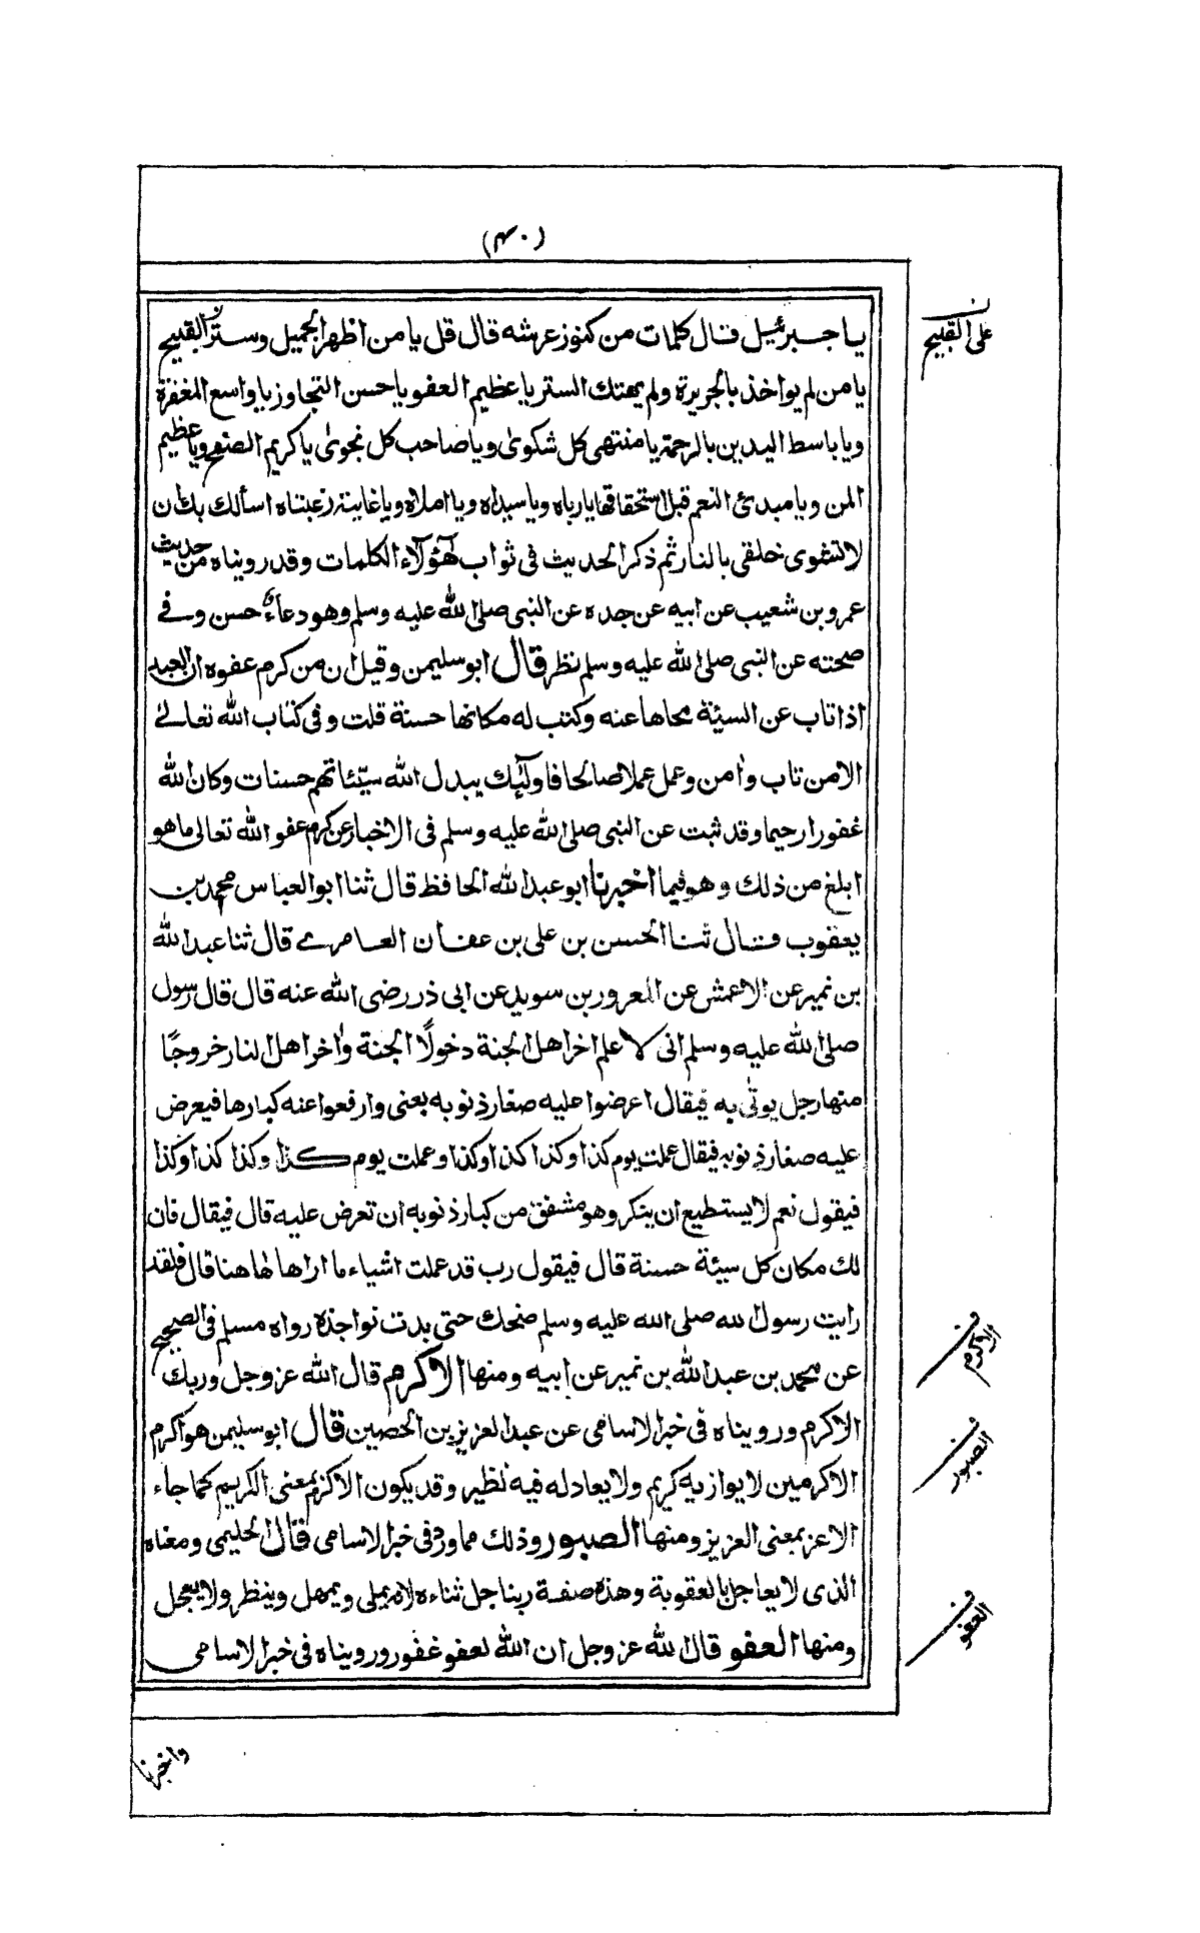 (۴۰)
يا جبرئيل قال كلمات من كنوز عرشه قال قل يا من اظهر الجميل وستر القبيح
على القبيح
يا من لم يواخذ بالجريرة ولم يهتك الستر يا عظيم العفو يا حسن التجاوز يا واسع المغفرة
ويا باسط اليدين بالرحمة يا منتهى كل شكوى ويا صاحب كل نجوى يا كريم الصفح ويا عظيم
المن ويا مبدئ النعم قبل استحقاقها يا رباه ويا سيداه ويا املاه ويا غاية رغبتاه اسألك بك ان
لا تشوى خلقى بالنار ثم ذكر الحديث فى ثواب هؤلاء الكلمات وقد رويناه من حديث
عمرو بن شعيب عن ابيه عن جده عن النبى صلى الله عليه وسلم وهو دعاء حسن وفے
صحته عن النبى صلى الله عليه وسلم نظر قال ابو سليمن وقيل ان من كرم عفوه ان العبد
اذا تاب عن السيئة محاها عنه وكتب له مكانها حسنة قلت وفى كتاب الله تعالےٰ
الا من تاب وامن وعمل عملا صالحا فاولئك يبدل الله سيئاتهم حسنات وكان الله
غفورا رحيما وقد ثبت عن النبى صلى الله عليه وسلم فى الاخبار عن كرم عفو الله تعالى ما هو
ابلغ من ذلك وهو فيما اخبرنا ابو عبد الله الحافظ قال ثنا ابو العباس محمد بن
يعقوب قال ثنا الحسن بن على بن عفان العامرے قال ثنا عبد الله
بن نمير عن الاعمش عن المعرور بن سويد عن ابى ذر رضى الله عنه قال قال رسول
صلى الله عليه وسلم انى لا علم اخر اهل الجنة دخولًا الجنة واخر اهل النار خروجًا
منها رجل يوتى به فيقال اعرضوا عليه صغار ذنوبه يعنى وارفعوا عنه كبارها فيعرض
عليه صغار ذنوبه فيقال عملت يوم كذا وكذا كذا وكذا وعملت يوم كذا وكذا كذا وكذا
فيقول نعم لا يستطيع ان ينكر وهو مشفق من كبار ذنوبه ان تعرض عليه قال فيقال فان
لك مكان كل سيئة حسنة قال فيقول رب قد عملت اشياء ما اراها هاهنا قال فلقد
رايت رسول لله صلى الله عليه وسلم ضحك حتى بدت نواجذه رواه مسلم فى الصحيح
عن محمد بن عبد الله بن نمير عن ابيه ومنها الاكرم قال الله عز وجل وربك
الاكرم
الاكرم ورويناه فى خبر الاسامى عن عبد العزيز بن الحصين قال ابو سليمن هو اكرم
الاكرمين لا يوازيه كريم ولا يعادله فيه نظير وقد يكون الاكرم بمعنى الكريم كما جاء
الصبور
الاعز بمعنى العزيز ومنها الصبور وذلك مما ورد فى خبر الاسامى قال الحليمى ومعناه
الذى لا يعاجل بالعقوبة وهذه صفة ربنا جل ثناءه لانه يملى ويمهل وينظر ولا يعجل
العفو
ومنها العفو قال لله عز وجل ان الله لعفو غفور ورويناه فى خبر الاسامى
واخبرنا